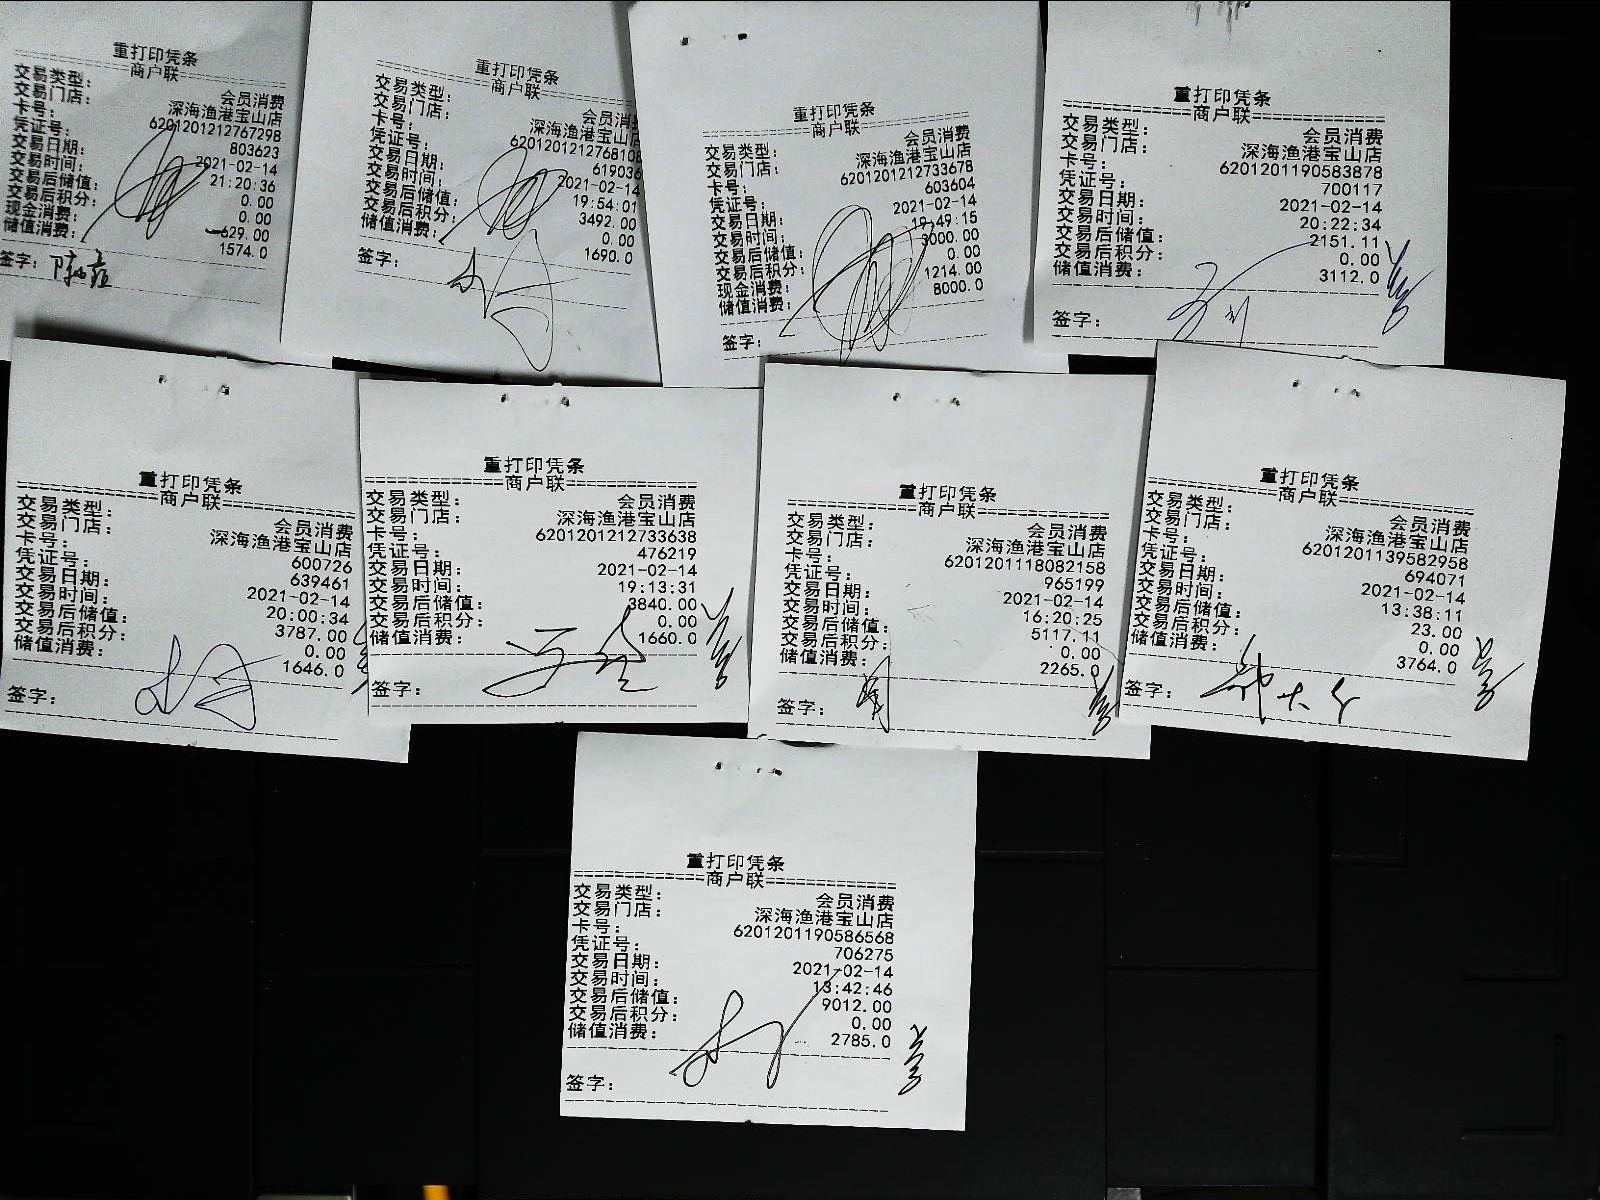 重打印凭条
商户联
交易类型： 会员消费
交易门店： 深海渔港宝山店
卡号： 6201201212767298
凭证号： 803623
交易日期： 2021-02-14
交易时间： 21:20:36
交易后储值： 0.00
交易后积分： 0.00
现金消费： 629.00
储值消费： 1574.0
签字：
重打印凭条
商户联
交易类型： 会员消
交易门店： 深海渔港宝山店
卡号： 620120121276810
凭证号： 619036
交易日期： 2021-02-14
交易时间： 19:54:01
交易后储值： 3492.00
交易后积分： 0.00
储值消费： 1690.0
签字：
重打印凭条
商户联
交易类型： 会员消费
交易门店： 深海渔港宝山店
卡号： 6201201212733678
凭证号： 603604
交易日期： 2021-02-14
交易时间： 19:49:15
交易后储值： 3000.00
交易后积分： 0.00
现金消费： 1214.00
储值消费： 8000.0
签字：
重打印凭条
商户联
交易类型： 会员消费
交易门店： 深海渔港宝山店
卡号： 6201201190583878
凭证号： 700117
交易日期： 2021-02-14
交易时间： 20:22:34
交易后储值： 2151.11
交易后积分： 0.00
储值消费： 3112.0
签字：
重打印凭条
商户联
交易类型： 会员消费
交易门店： 深海渔港宝山店
卡号： 600726
凭证号： 639461
交易日期： 2021-02-14
交易时间： 20:00:34
交易后储值： 3787.00
交易后积分： 0.00
储值消费： 1646.0
签字：
重打印凭条
商户联
交易类型： 会员消费
交易门店： 深海渔港宝山店
卡号： 6201201212733638
凭证号： 476219
交易日期： 2021-02-14
交易时间： 19:13:31
交易后储值： 3840.00
交易后积分： 0.00
储值消费： 1660.0
签字：
重打印凭条
商户联
交易类型： 会员消费
交易门店： 深海渔港宝山店
卡号： 6201201118082158
凭证号： 965199
交易日期： 2021-02-14
交易时间： 16:20:25
交易后储值： 5117.11
交易后积分： 0.00
储值消费： 2265.0
签字：
重打印凭条
商户联
交易类型： 会员消费
交易门店： 深海渔港宝山店
卡号： 6201201139582958
凭证号： 694071
交易日期： 2021-02-14
交易时间： 13:38:11
交易后储值： 23.00
交易后积分： 0.00
储值消费： 3764.0
签字：
重打印凭条
商户联
交易类型： 会员消费
交易门店： 深海渔港宝山店
卡号： 6201201190586568
凭证号： 706275
交易日期： 2021-02-14
交易时间： 13:42:46
交易后储值： 9012.00
交易后积分： 0.00
储值消费： 2785.0
签字：